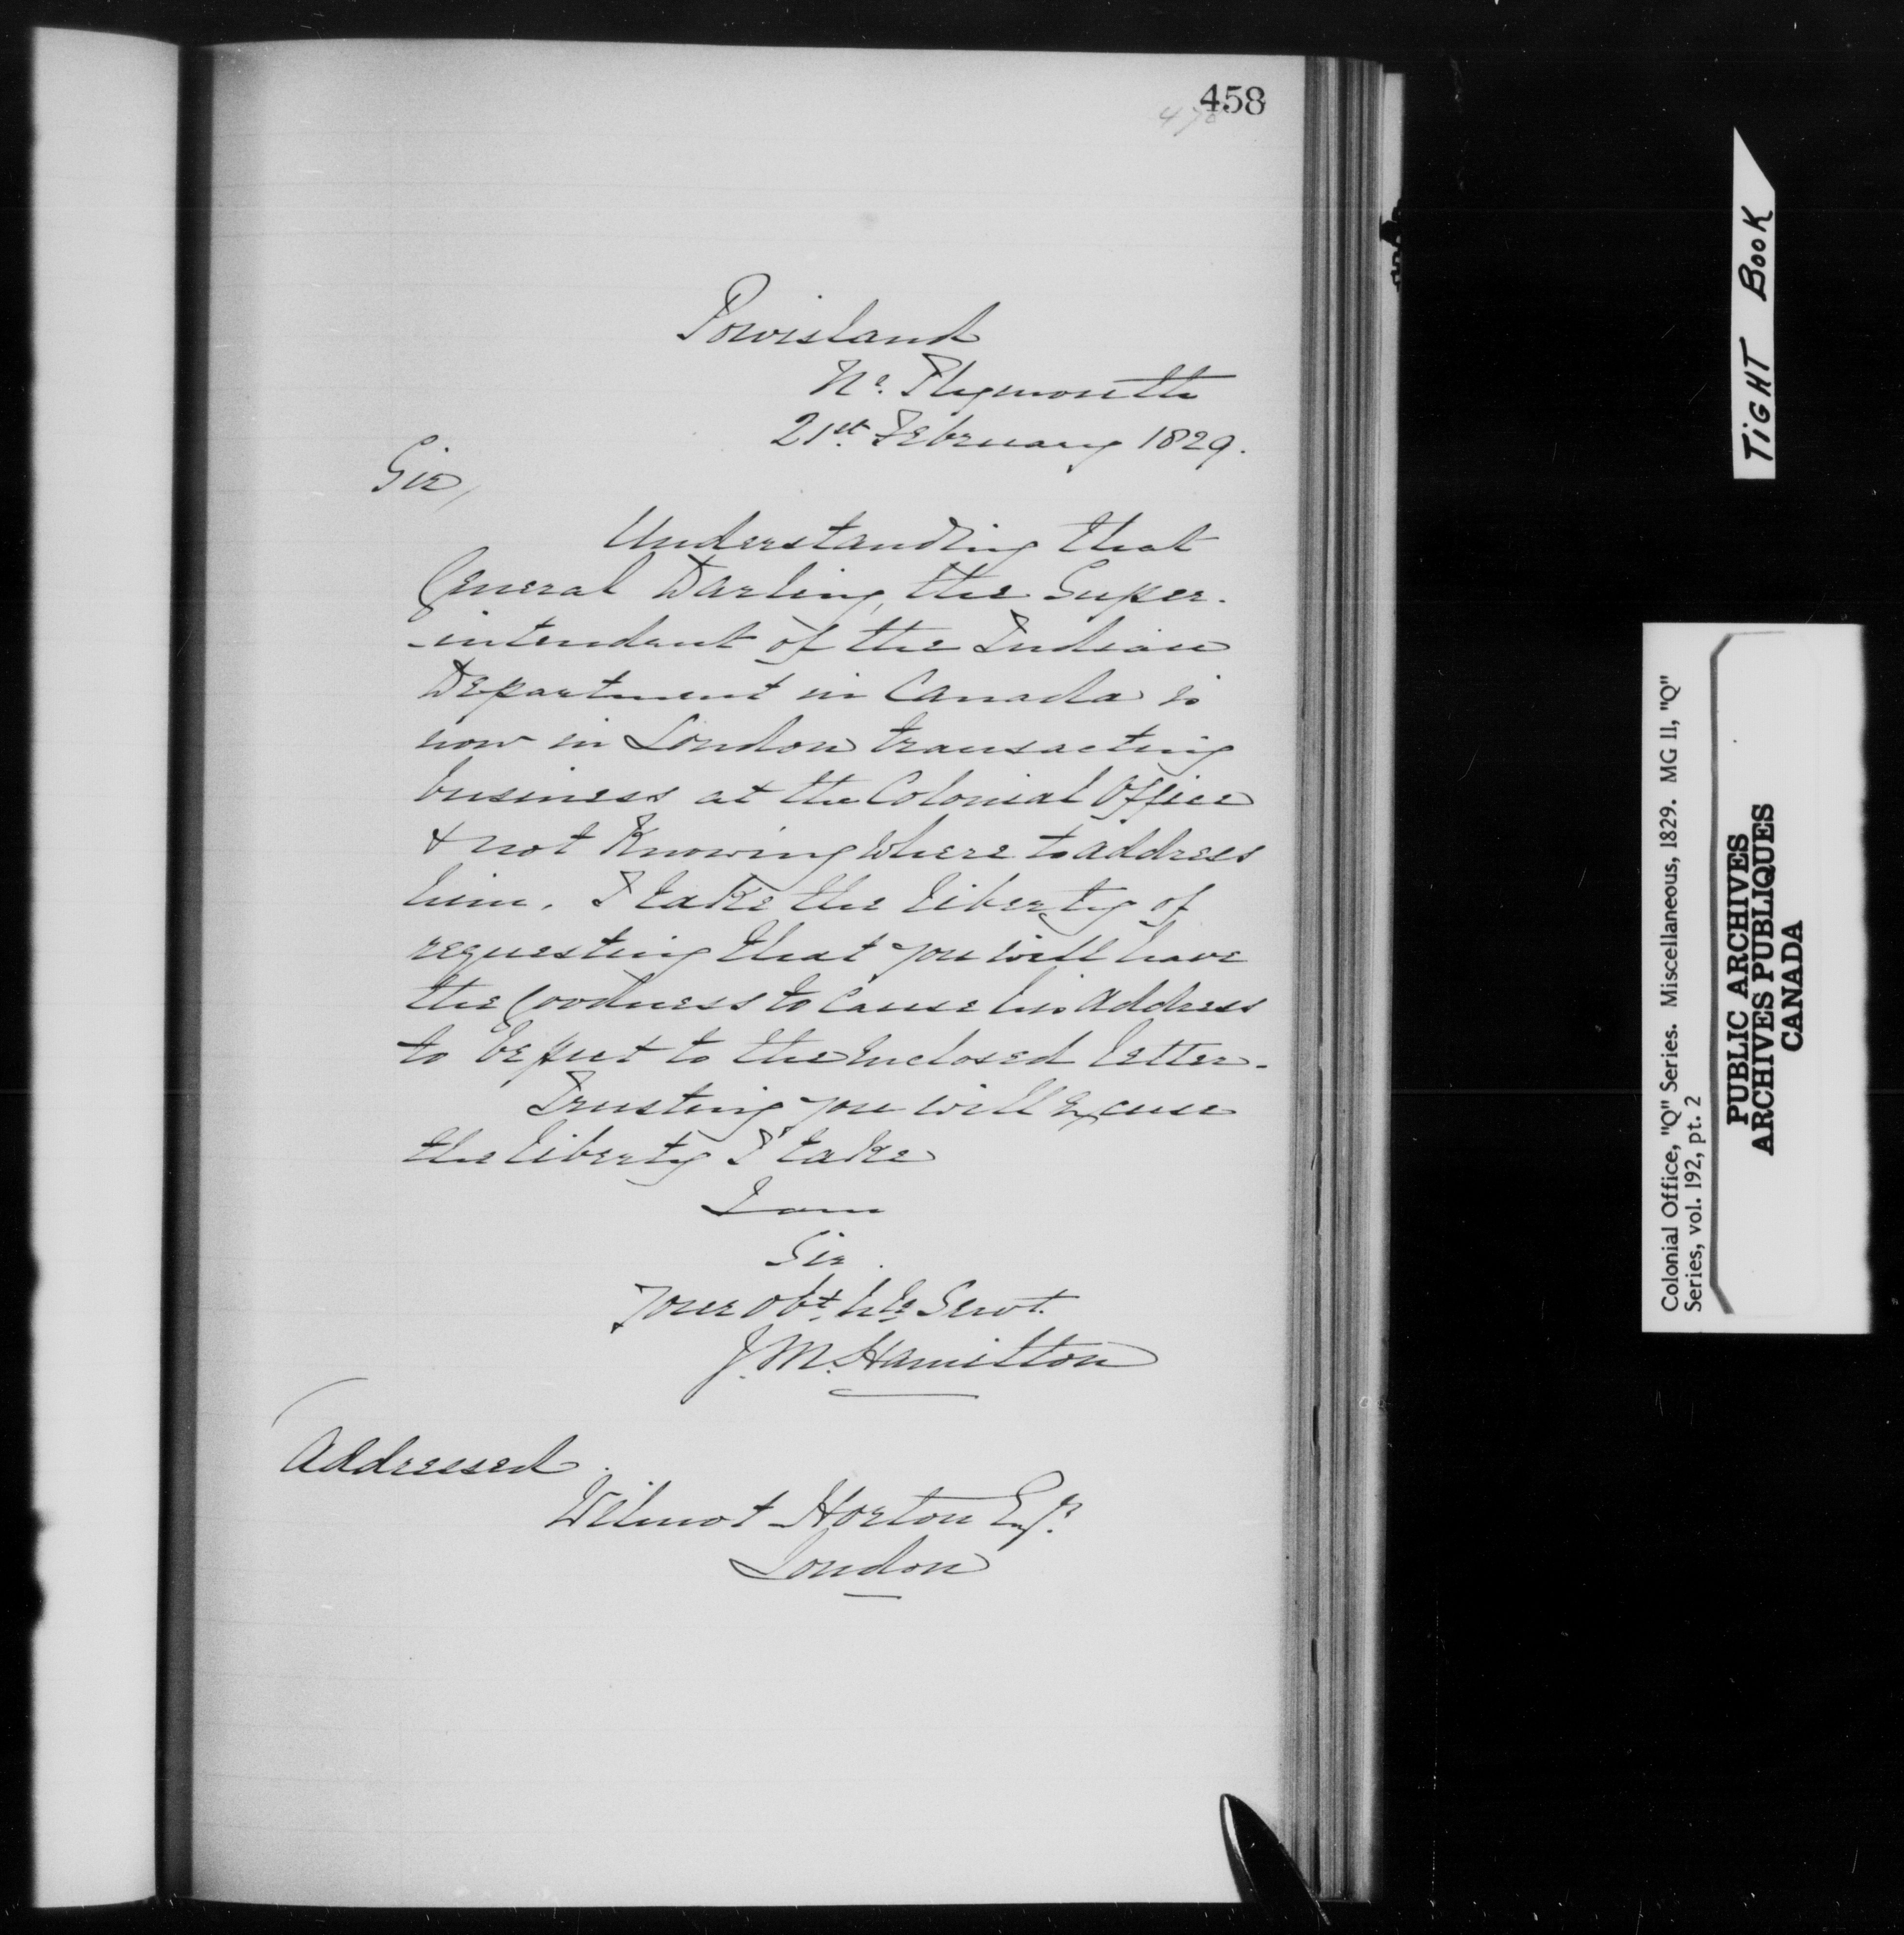 458
470
Powisland
Nr. Plymouth
21st February 1829.
Sir,
Understanding that
General Darling, the Super-
-intendant of the Indian
Department in Canada is
now in London transacting
business at the Colonial Office
& not Knowing where to address
him. I take the liberty of
requesting that you will have
the goodness to cause his address
to be put to the enclosed letter.
Trusting you will Excuse
the liberty I take
I am
Sir.
Your obt. hle Servt.
J. M. Hamilton
Addressed.
Wilmot Horton Esqr.
London
TIGHT BOOK
Colonial Office, "Q" Series. Miscellaneous, 1829. MG 11, "Q"
Series, vol. 192, pt. 2
PUBLIC ARCHIVES
ARCHIVES PUBLIQUES
CANADA